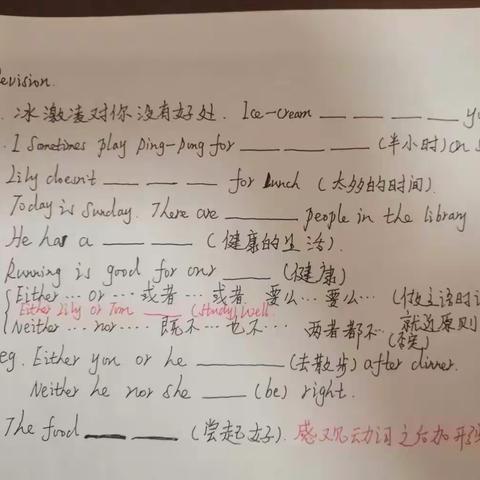 Revision.
冰激凌对你没有好处. Ice-cream ___ ___ ___ ___
. I sometimes play ping-pong for ___ ___ ___ (半小时) on
Lily doesn't ___ ___ ___ for lunch (太多的时间).
Today is Sunday. There are ______ people in the library
He has a ___ ___ (健康的生活).
Running is good for our ___ (健康)
{ Either … or … 或者 … 或者 要么 … 要么 … (做主语时
Either Lily or Tom ___ (study) well.
Neither … nor … 既不 … 也不 … 两者都不 … 就近原则)
eg. Either you or he ______ (去散步) after dinner.
Neither he nor she ___ (be) right.
The food ___ ___ (尝起好). 感观动词之后加形